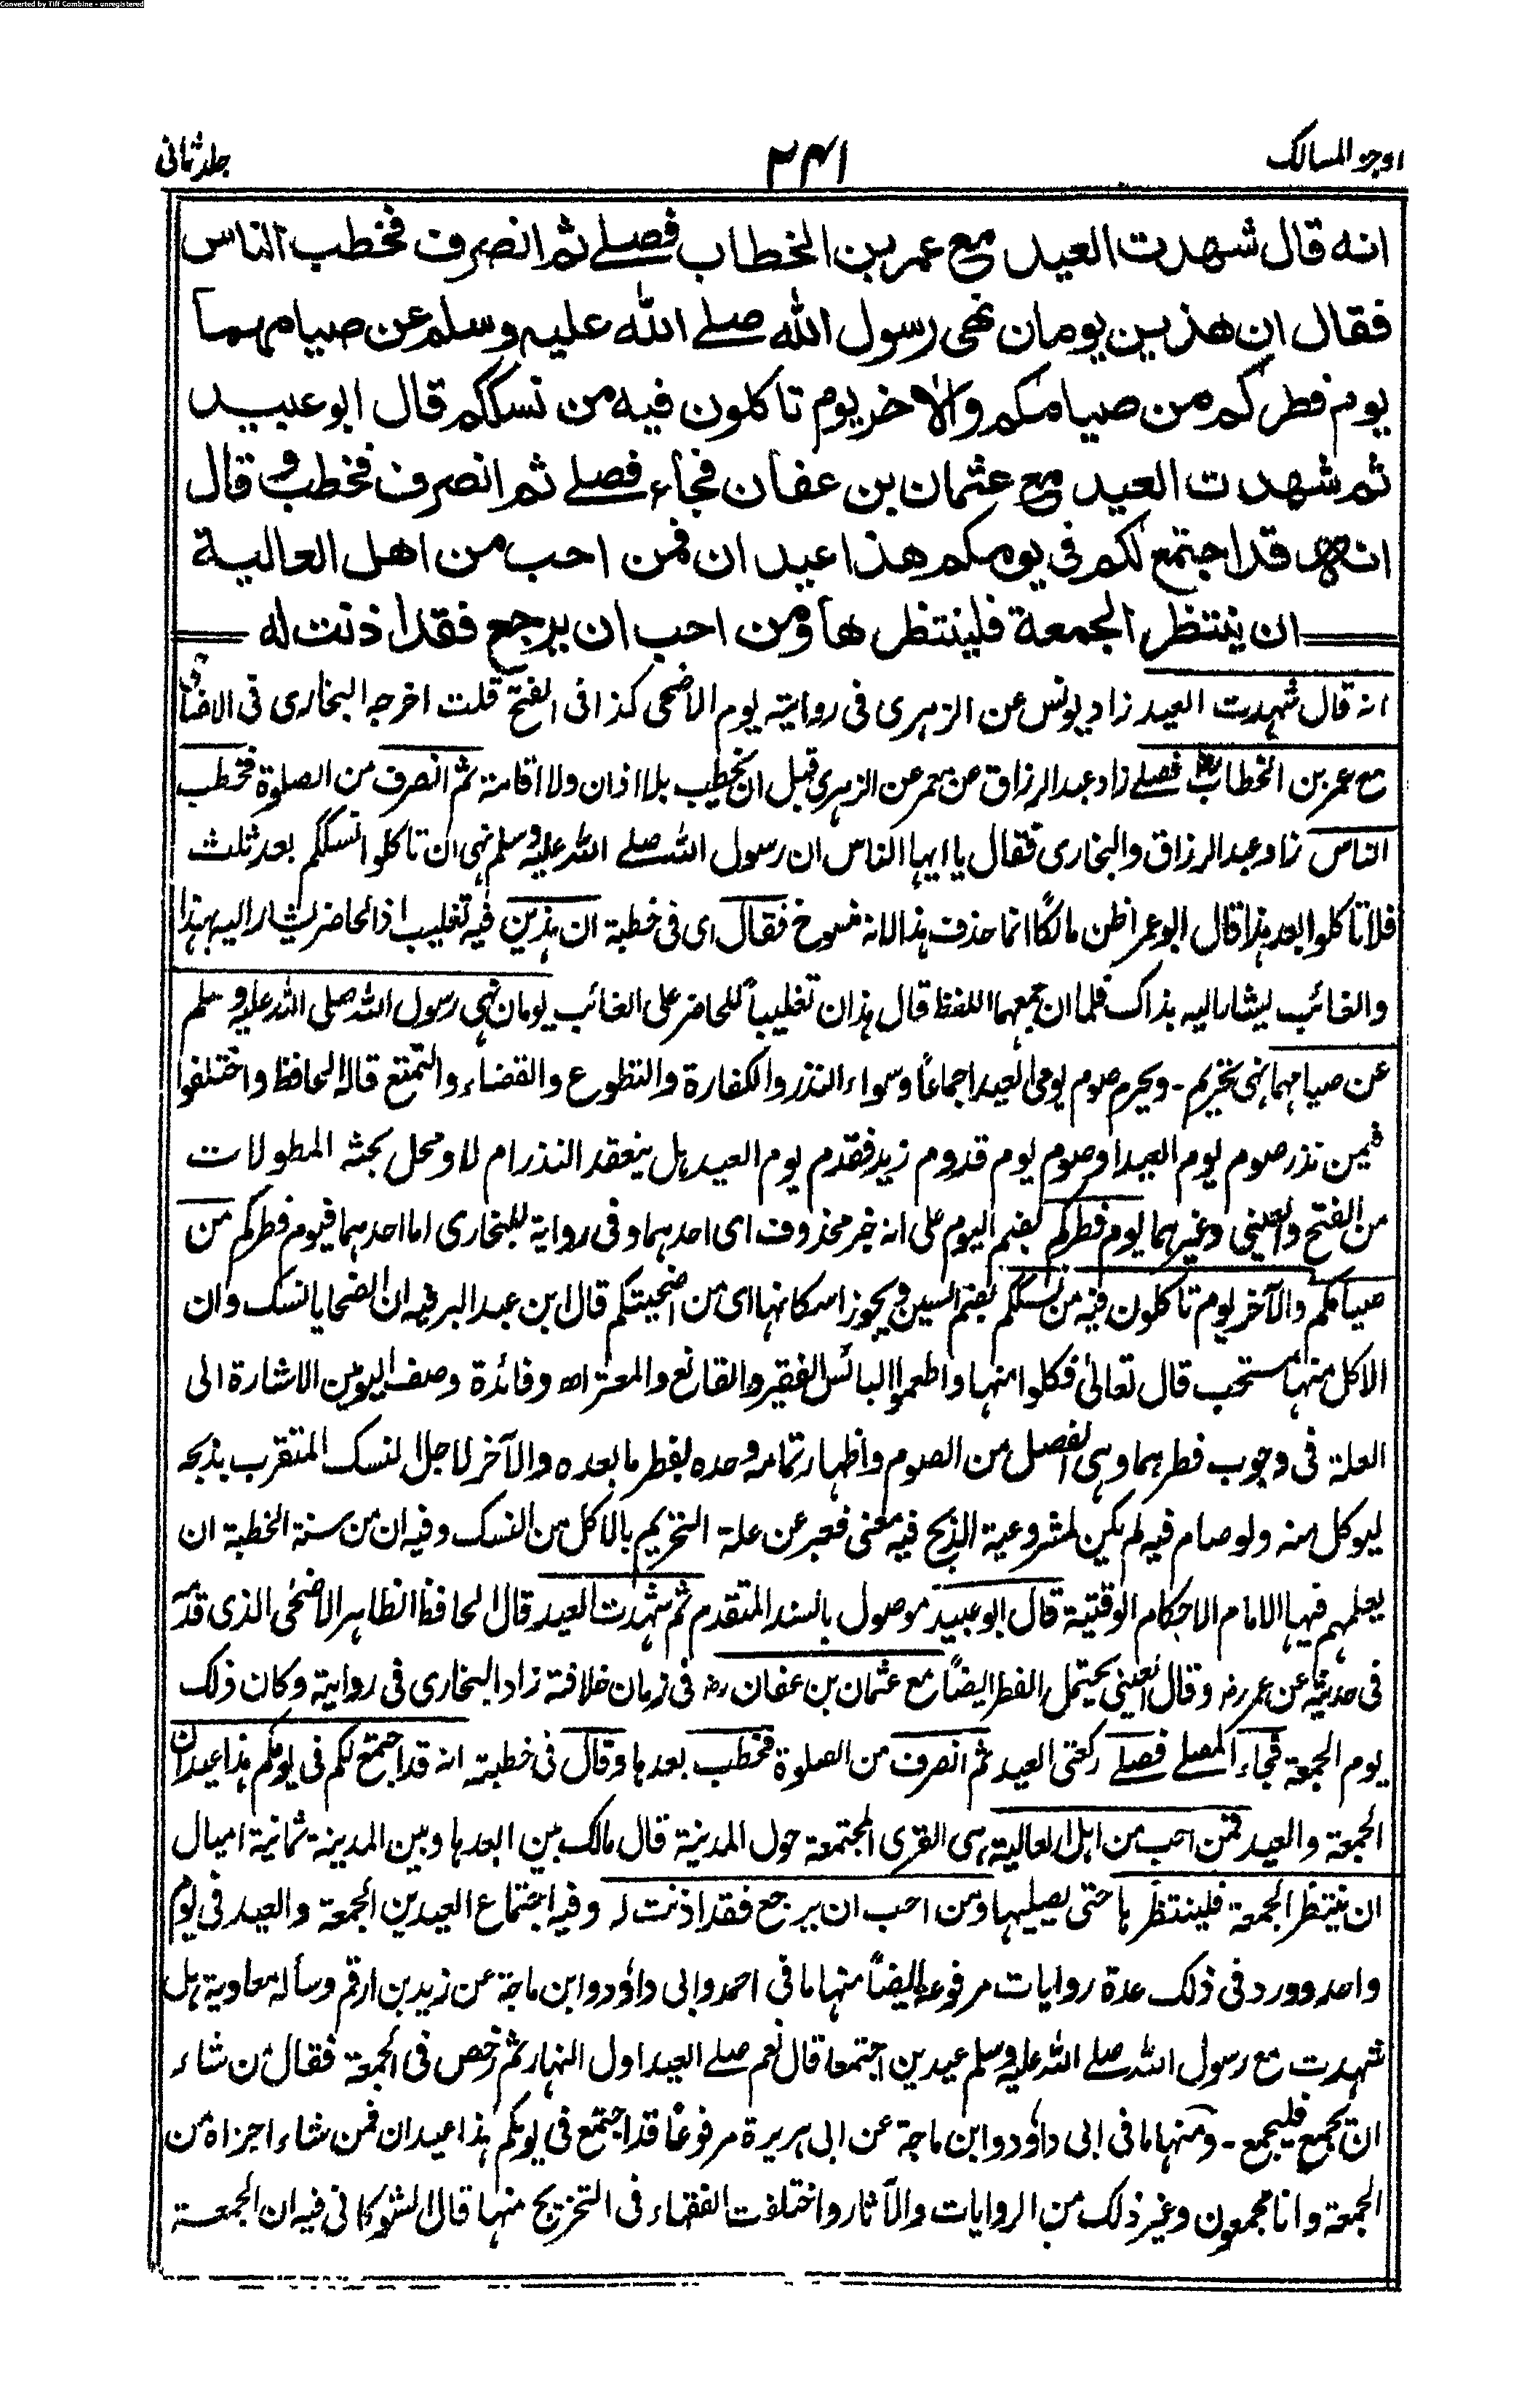 Converted by Tiff Combine - unregistered
اوجز المسالک ۲۴۱ جلد ثانی
انه قال شهدت العيد مع عمر بن الخطاب فصلے ثم انصرف فخطب الناس
فقال ان هذين يومان نهى رسول الله صلے الله عليه وسلم عن صيامهما
يوم فطركم من صيامكم والآخر يوم تاكلون فيه من نسككم قال ابو عبيد
ثم شهدت العيد مع عثمان بن عفان فجاء فصلے ثم انصرف فخطب وقال
انه قد اجتمع لكم فى يومكم هذا عيدان فمن احب من اهل العالية
ان ينتظر الجمعة فلينتظرها ومن احب ان يرجع فقد اذنت له
انه قال شهدت العيد زاد يونس عن الزهرى فى روايته يوم الاضحى كذا فى الفتح قلت اخرجه البخارى فى الاضاحى
مع عمر بن الخطاب رضؓ فصلے زاد عبد الرزاق عن معمر عن الزهرى قبل ان يخطب بلا اذان ولا اقامة ثم انصرف من الصلوة فخطب
الناس زاد عبد الرزاق والبخارى فقال يا ايها الناس ان رسول الله صلے الله عليه وسلم نهى ان تاكلوا نسككم بعد ثلث
فلا تاكلوا بعد هذا قال ابو عمر اظن مالكًا انما حذف هذا لانه منسوخ فقال اى فى خطبة ان هذين فيه تغليب اذ الحاضر يشار اليه بهذا
والغائب ليشار اليه بذاك فلما ان جمعهما اللفظ قال هذان تغليباً للحاضر على الغائب يومان نهى رسول الله صلى الله عليه وسلم
عن صيامهما نهى تحريم - ويحرم صوم يومى العيد اجماعًا وسواء النذر والكفارة والتطوع والقضاء والتمتع قاله الحافظ واختلفوا
فيمن نذر صوم يوم العيد او صوم يوم قدوم زيد فقدم يوم العيد هل ينعقد النذر ام لا ومحل بحثه المطولات
من الفتح والعينى وغيرهما يوم فطركم بضم اليوم على انه خبر محذوف اى احدهما وفى رواية للبخارى اما احدهما فيوم فطركم من
صيامكم والآخر يوم تاكلون فيه من نسككم بضم السين ويجوز اسكانها اى من اضحيتكم قال ابن عبد البر فيه ان الضحايا نسك وان
الاكل منها مستحب قال تعالى فكلوا منها واطعموا البائس الفقير والقانع والمعتر اه وفائدة وصف اليومين الاشارة الى
العلة فى وجوب فطرهما وهى الفصل من الصوم واظهار تمامه وحده بفطر ما بعده والآخر لاجل النسك المتقرب بذبحه
ليوكل منه ولو صام فيه لم يكن لمشروعية الذبح فيه معنى فعبر عن علة التحريم بالاكل من النسك وفيه ان من سنة الخطبة ان
يعلمهم فيها الامام الاحكام الوقتية قال ابو عبيد موصول بالسند المتقدم ثم شهدت العيد قال الحافظ الظاهر الاضحى الذى قدمه
فى حديثه عن عمر رضؓ وقال العينى يحتمل الفطر ايضًا مع عثمان بن عفان رضؓ فى زمان خلافته زاد البخارى فى رواية وكان ذلك
يوم الجمعة فجاء المصلے فصلے ركعتى العيد ثم انصرف من الصلوة فخطب بعدها وقال فى خطبته انه قد اجتمع لكم فى يومكم هذا عيدان
الجمعة والعيد فمن احب من اهل العالية هى القرى المجتمعة حول المدينة قال مالك بين ابعدها وبين المدينة ثمانية اميال
ان ينتظر الجمعة فلينتظرها حتى يصليها ومن احب ان يرجع فقد اذنت له وفيه اجتماع العيدين الجمعة والعيد فى يوم
واحد وورد فى ذلك عدة روايات مرفوعة ايضًا منها ما فى احمد وابى داؤد وابن ماجة عن زيد بن ارقم وسأله معاوية هل
شهدت مع رسول الله صلے الله عليه وسلم عيدين اجتمعا قال نعم صلے العيد اول النهار ثم رخص فى الجمعة فقال من شاء
ان يجمع فليجمع - ومنها ما فى ابى داؤد وابن ماجة عن ابى هريرة مرفوعًا قد اجتمع فى يومكم هذا عيدان فمن شاء اجزاه من
الجمعة وانا مجمعون وغير ذلك من الروايات والآثار واختلفت الفقهاء فى التخريج منها قال الشوكانى فيه ان الجمعة